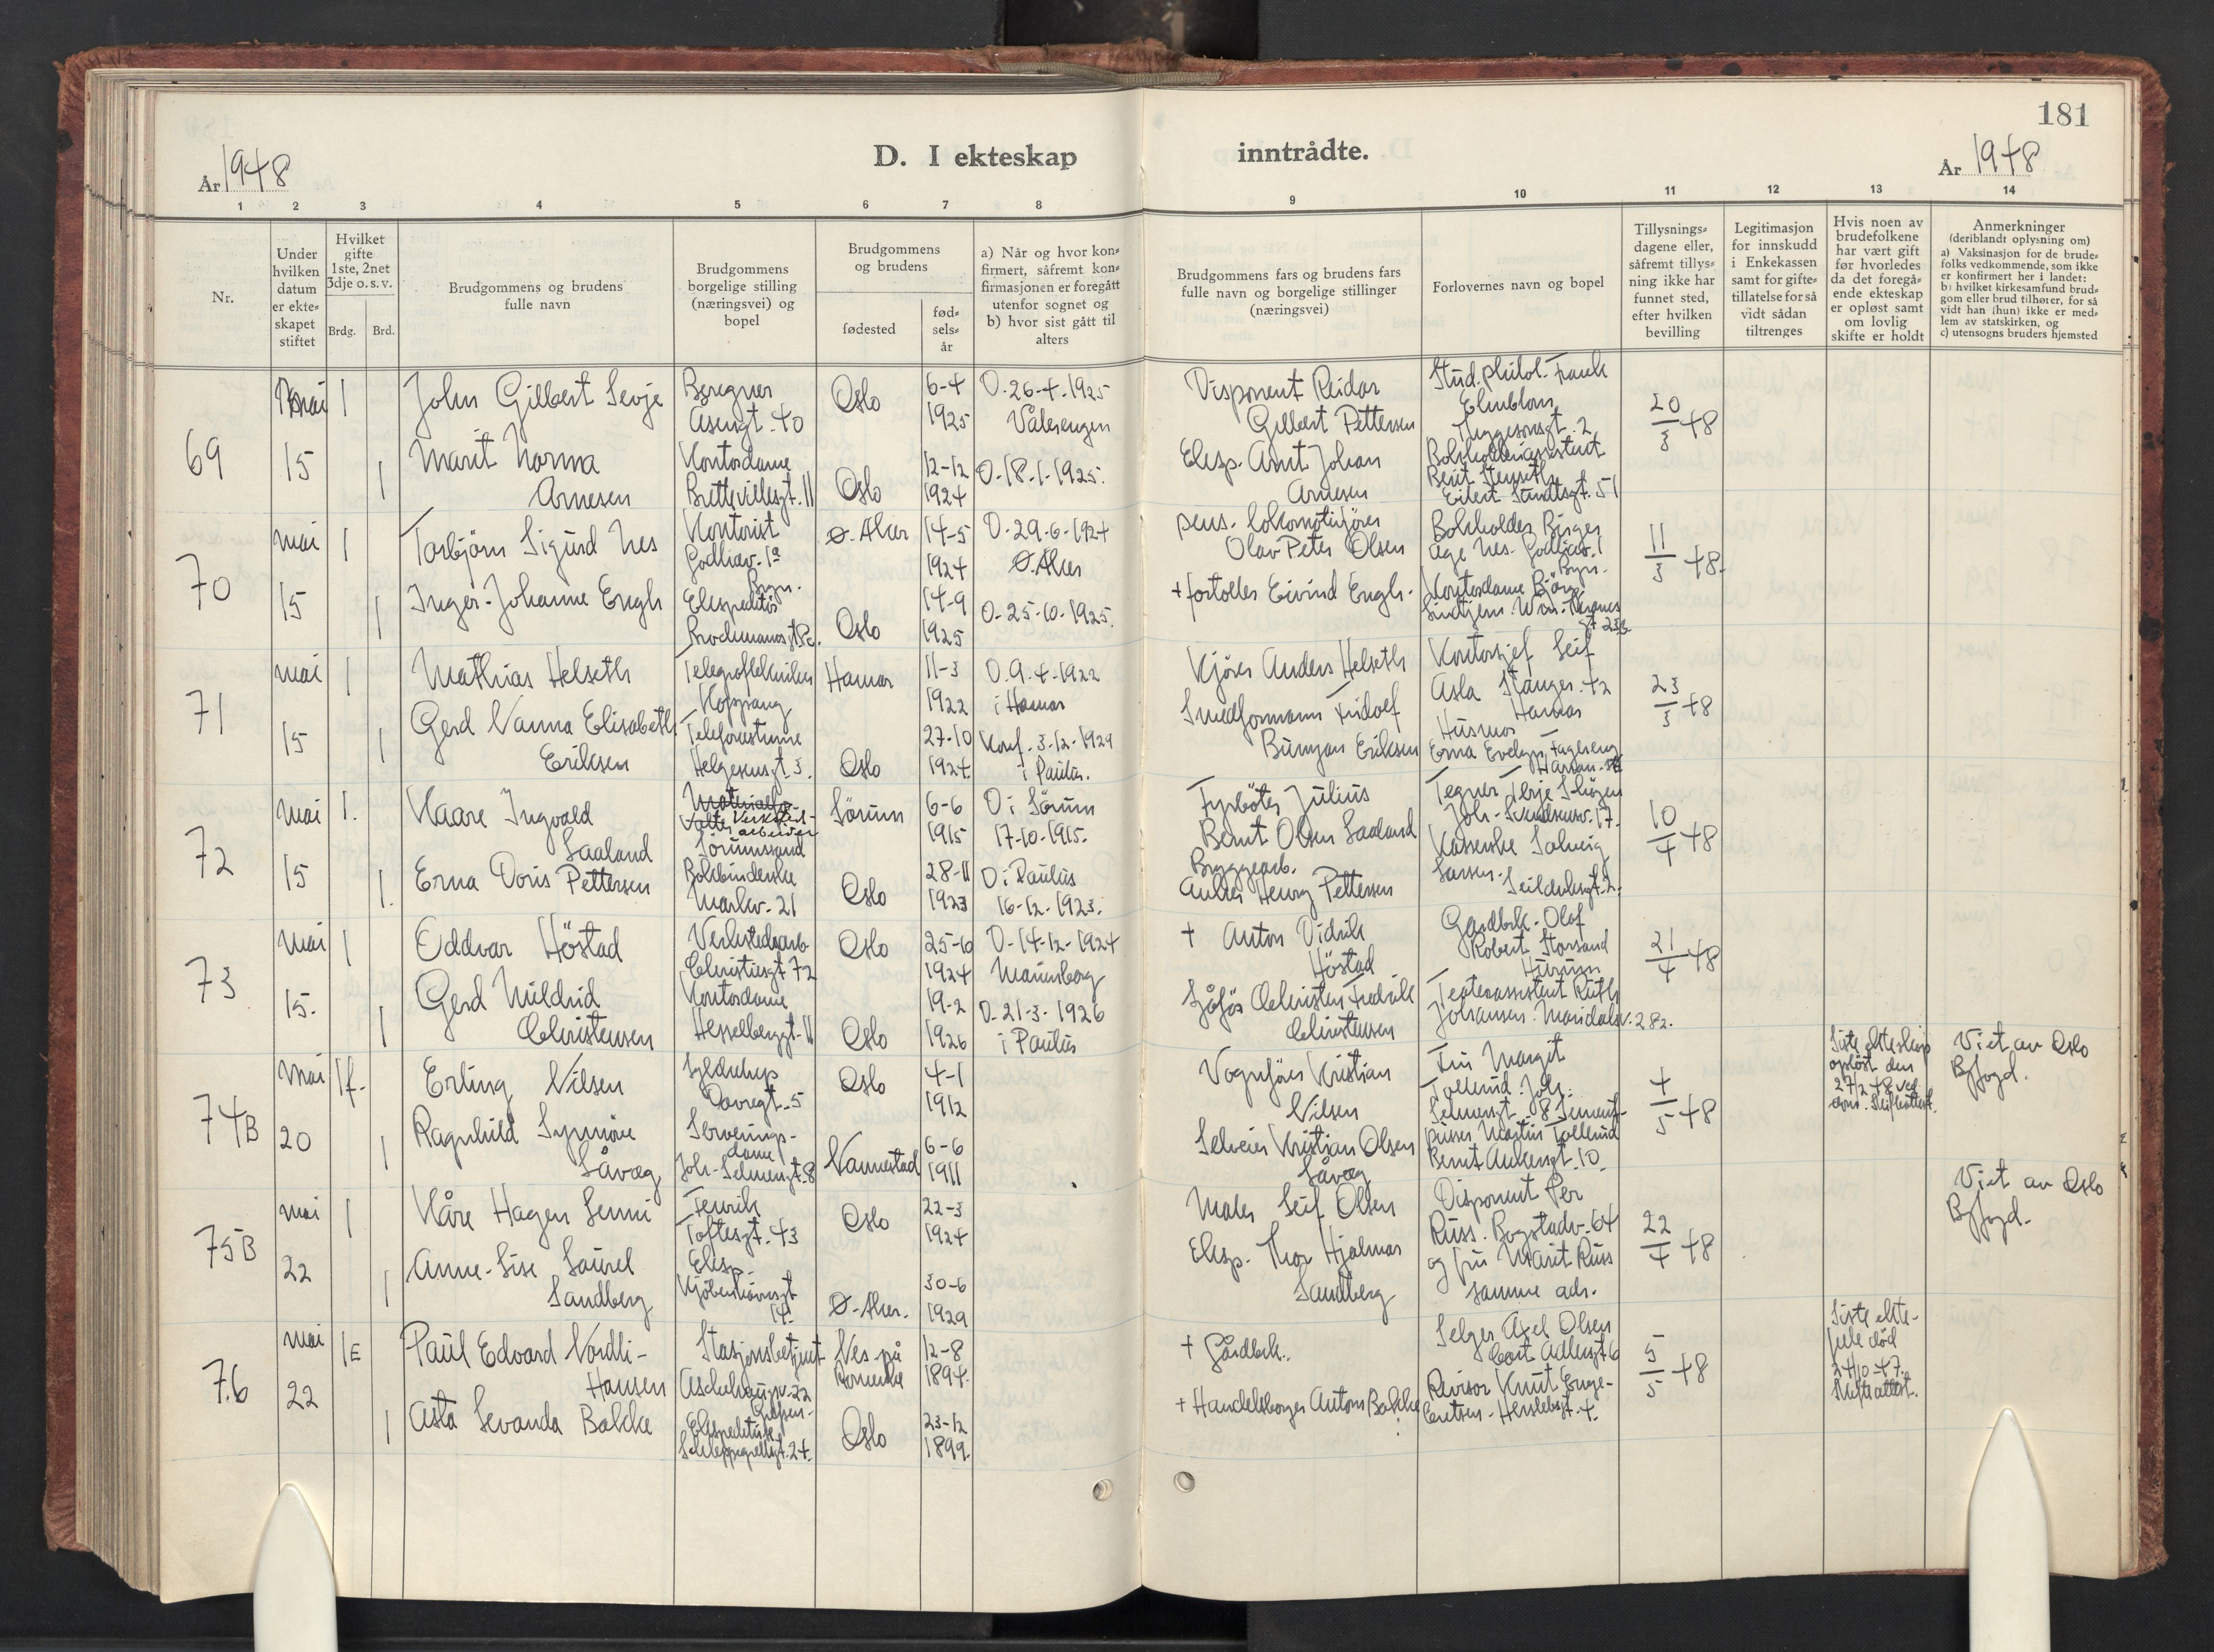 181
År 1948
D. I ekteskap inntrådte.
År 1948
1 2 3 4 5 6 7 8 9 10 11 12 13 14
Nr.
Under hvilken datum er ekte= skapet stiftet
Hvilket gifte 1ste, 2net 3dje o. s. v.
Brdg. Brd.
Brudgommens og brudens fulle navn
Brudgommens borgelige stilling (næringsvei) og bopel
Brudgommens og brudens
fødested
fød= sels= år
a) Når og hvor kon= firmert, såfremt kon= firmasjonen er foregått utenfor sognet og b) hvor sist gått til alters
Brudgommens fars og brudens fars fulle navn og borgelige stillinger (næringsvei)
Forlovernes navn og bopel
Tillysnings= dagene eller, såfremt tillys= ning ikke har funnet sted, efter hvilken bevilling
Legitimasjon for innskudd i Enkekassen samt for gifte= tillatelse for så vidt sådan tiltrenges
Hvis noen av brudefolkene har vært gift før hvorledes da det foregå= ende ekteskap er opløst samt om lovlig skifte er holdt
Anmerkninger (deriblandt oplysning om) a) Vaksinasjon for de brude= folks vedkommende, som ikke er konfirmert her i landet: b) hvilket kirkesamfund brud= gom eller brud tilhører, for så vidt han (hun) ikke er med= lem av statskirken, og c) utensogns bruders hjemsted
69
mai 15
1
John Gilbert Sevje
Beregner
Asengt. 40
Oslo
6-4
1925
D. 26-4-1925
Vålerengen
Disponent Reidar
Gilbert Pettersen
Stud. philol. Frank
20/3 48
1
Marit Norma
Arnesen
Kontordame
Brettevillesgt. 11
Oslo
12-12
1924
D-18-1-1925.
Eksp. Arnt Johan
Arnesen
Eilert Sundtsgt. 51
70
mai 15
1
Torbjörn Sigurd Nes
Kontorist
Godliav. 1a
Bryn.
Ø. Aker
14-5
1924
D-29-6-1924
Ø. Aker
pens. lokomotivförer
Olav Peter Olsen
Bokholder Birger
Åge Nes. Godliav. 1
Bryn.
11/3 48.
1
Inger-Johanne Engh
Ekspeditör
Oslo
14-9
1925
D-25-10-1925.
+ fortoller Eivind Engh.
Kontordame Björg
71
mai 15
1
Mathias Helseth
Telegraftekniker
Koppang
Hamar
11-3
1922
D. 9-4-1922
i Hamar
Kjörer Anders Helseth
Kontorsjef Leif
Asla Stangev. 42
Hamar
23/3 48
1
Gerd Nanna Elisabeth
Eriksen
Telefonistinne
Helgesensgt. 3.
Oslo
27-10
1924.
Konf. 3-12-1929
i Paulus.
Smedformann Fridolf
Bunyan Eriksen
Husmor
Erna Evelyn Fagereng
72
mai 15
1.
Kaare Ingvald
Saaland
Verksted-
arbeider
Sörumsand
Sörum
6-6
1915
D i Sörum
17-10-1915.
Fyrböter Julius
Bernt Olsen Saaland
Tegner Terje Skogen
Joh. Svendsensv. 17.
10/4 48
1.
Erna Doris Pettersen
Bokbinderske
Markv. 21
Oslo
28-11
1923
D i Paulus
16-12-1923.
Bryggearb.
Anker Henry Pettersen
Kasserske Solveig
Larsen.
Seilduksgt. 2.
73
mai 15.
1
Oddvar Höstad
Verkstedsarb.
Christiesgt. 72
Oslo
25-10
1924
D-14-12-1924
Maridalen
+ Anton Vidrik
Höstad
Gårdbr. Olaf
Robert Storsand
Hurum
21/4 48
1
Gerd Mildrid
Christensen
Kontordame
Hesselbergsgt. 11
Oslo
19-2
1926
D-21-3-1926
i Paulus
Sjåför Christen Fredrik
Christensen
Teaterassistent Ruth
Johansen. Maridalsv. 282.
74B
mai 20
1f.
Erling Nilsen
Dovregt. 5
Oslo
4-1
1912
Vognförer Kristian
Nilsen
Fru Margit
Tollerud. Joh.
Selmersgt. 8.
4/5 48
Siste ekteskap
oplöst den
27/2 48 ved
dom. Skifteattest.
Viet av Oslo
Byfogd.
1
Ragnhild Synnöve
Såvæg
Serverings-
dame
Joh. Selmersgt. 8
Nannestad
6-6
1911
Selveier Kristian Olsen
Såvæg
Martin Tollerud
Bernt Ankersgt. 10.
75B
mai 22
1
Kåre Hagen Lenni
Fenrik
Toftesgt. 43
Oslo
22-3
1924
Maler Leif Olsen
Disponent Per
Russ. Bogstadv. 64
22/4 48
Viet av Oslo
Byfogd.
1
Anne-Lise Laurel
Sandberg
Eksp.
Kjöbenhavnsgt
14.
Ø. Aker.
30-6
1929
Eksp. Thor Hjalmar
Sandberg
og fru Marit Russ
samme adr.
76
mai 22
1E
Paul Edvard Nordli-
Hansen
Stasjonsbetjent
Aschehougsv. 22
Grefsen.
Nes på
Romerike
12-8
1894.
+ Gårdbr.
Selger Axel Olsen
Cort Adlersgt 6
5/5 48
Siste ekte-
felle död
24/10-47.
Skifteattest.
1
Asta Sevanda Bakke
Ekspeditrise
Schleppegrellsgt. 24.
Oslo
23-12
1899.
+ Handelsborger Anton Bakke
Revisor Knut Enge-
bretsen. Herslebsgt. 4.